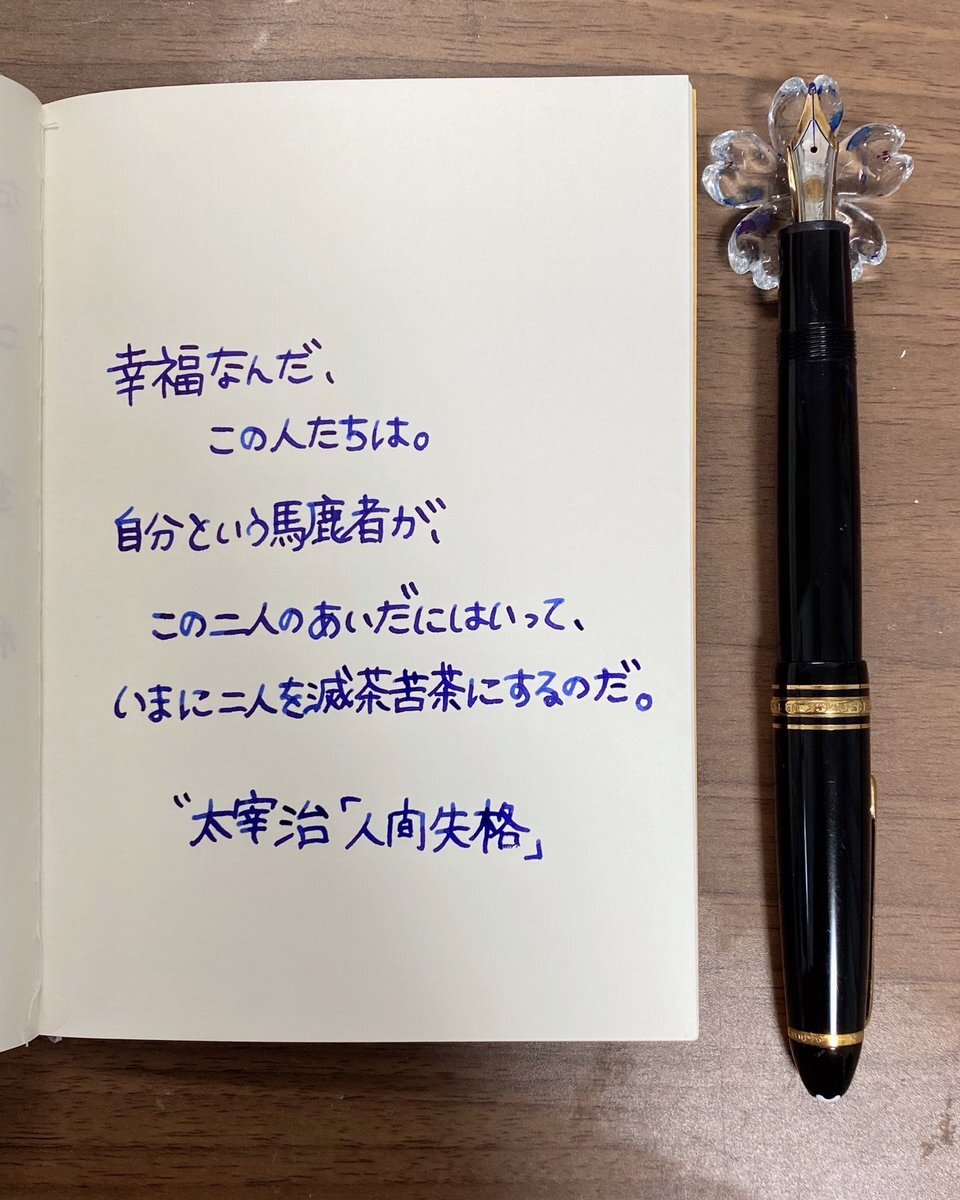 幸福なんだ、
この人たちは。
自分という馬鹿者が、
この二人のあいだにはいって、
いまに二人を滅茶苦茶にするのだ。
〝太宰治「人間失格」